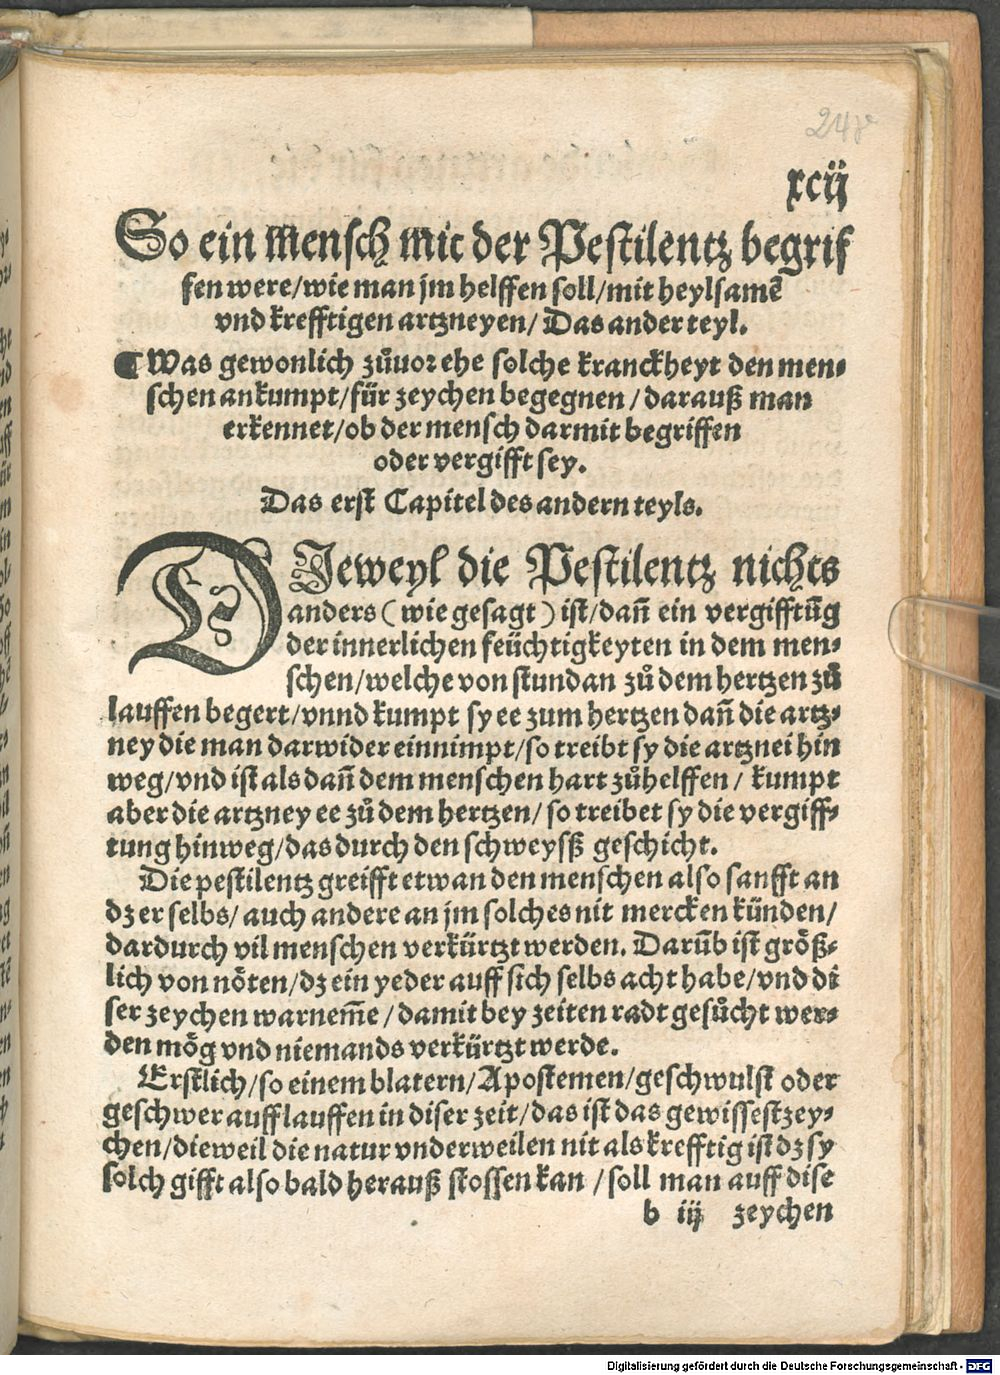 248
xcij
So ein mensch mit der Pestilentz begrif
fen were/wie man jm helffen soll/mit heylsamẽ
vnd krefftigen artzneyen/ Das ander teyl.
¶ Was gewonlich zůuor ehe solche kranckheyt den men⸗
schen ankumpt/für zeychen begegnen/darauß man
erkennet/ob der mensch darmit begriffen
oder vergifft sey.
Das erst Capitel des andern teyls.
DJeweyl die Pestilentz nichts
anders (wie gesagt) ist/dañ ein vergifftũg
der innerlichen feüchtigkeyten in dem men⸗
schen/welche von stund an zů dem hertzen zů
lauffen begert/vnnd kumpt sy ee zum hertzen dañ die artz⸗
ney die man darwider einnimpt/so treibt sy die artznei hin
weg/vnd ist als dañ dem menschen hart zůhelffen/ kumpt
aber die artzney ee zů dem hertzen/so treibet sy die vergiff⸗
tung hinweg/das durch den schweysß geschicht.
Die pestilentz greifft etwan den menschen also sanfft an
dz er selbs/auch andere an jm solches nit mercken künden/
dardurch vil menschen verkürtzt werden. Darũb ist größ⸗
lich von nöten/dz ein yeder auff sich selbs acht habe/vnd di
ser zeychen warnem̃e/damit bey zeiten radt gesůcht wer⸗
den mög vnd niemands verkürtzt werde.
Erstlich/so einem blatern/Apostemen/geschwulst oder
geschwer aufflauffen in diser zeit/das ist das gewissest zey⸗
chen/dieweil die natur vnderweilen nit als krefftig ist dz sy
solch gifft also bald herauß stossen kan/soll man auff dise
b iij zeychen
Digitalisierung gefördert durch die Deutsche Forschungsgemeinschaft - DFG